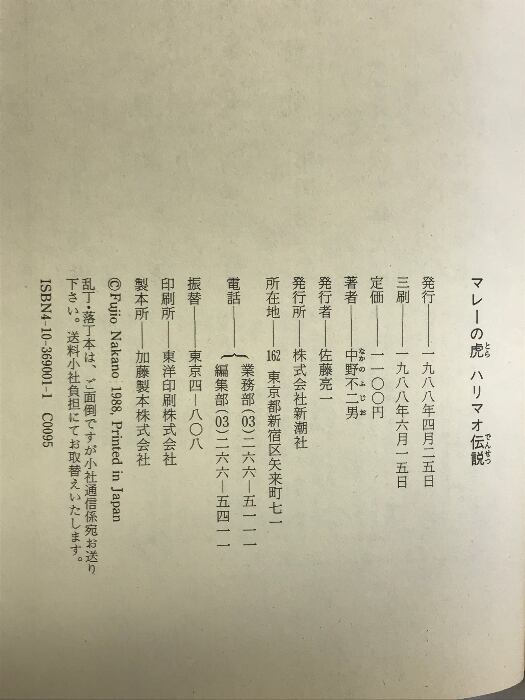 マレーの虎 ハリマオ伝説
とら
でんせつ
発行――一九八八年四月二五日
三刷――一九八八年六月一五日
定価――一一〇〇円
著者――中野不二男
なかのふじお
発行者――佐藤亮一
発行所――株式会社新潮社
所在地――162 東京都新宿区矢来町七一
電話――業務部(03)二六六―五一一一
編集部(03)二六六―五四一一
振替――東京四―八〇八
印刷所――東洋印刷株式会社
製本所――加藤製本株式会社
©Fujio Nakano 1988, Printed in Japan
乱丁・落丁本は、ご面倒ですが小社通信係宛お送り
下さい。送料小社負担にてお取替えいたします。
ISBN4-10-369001-1 C0095